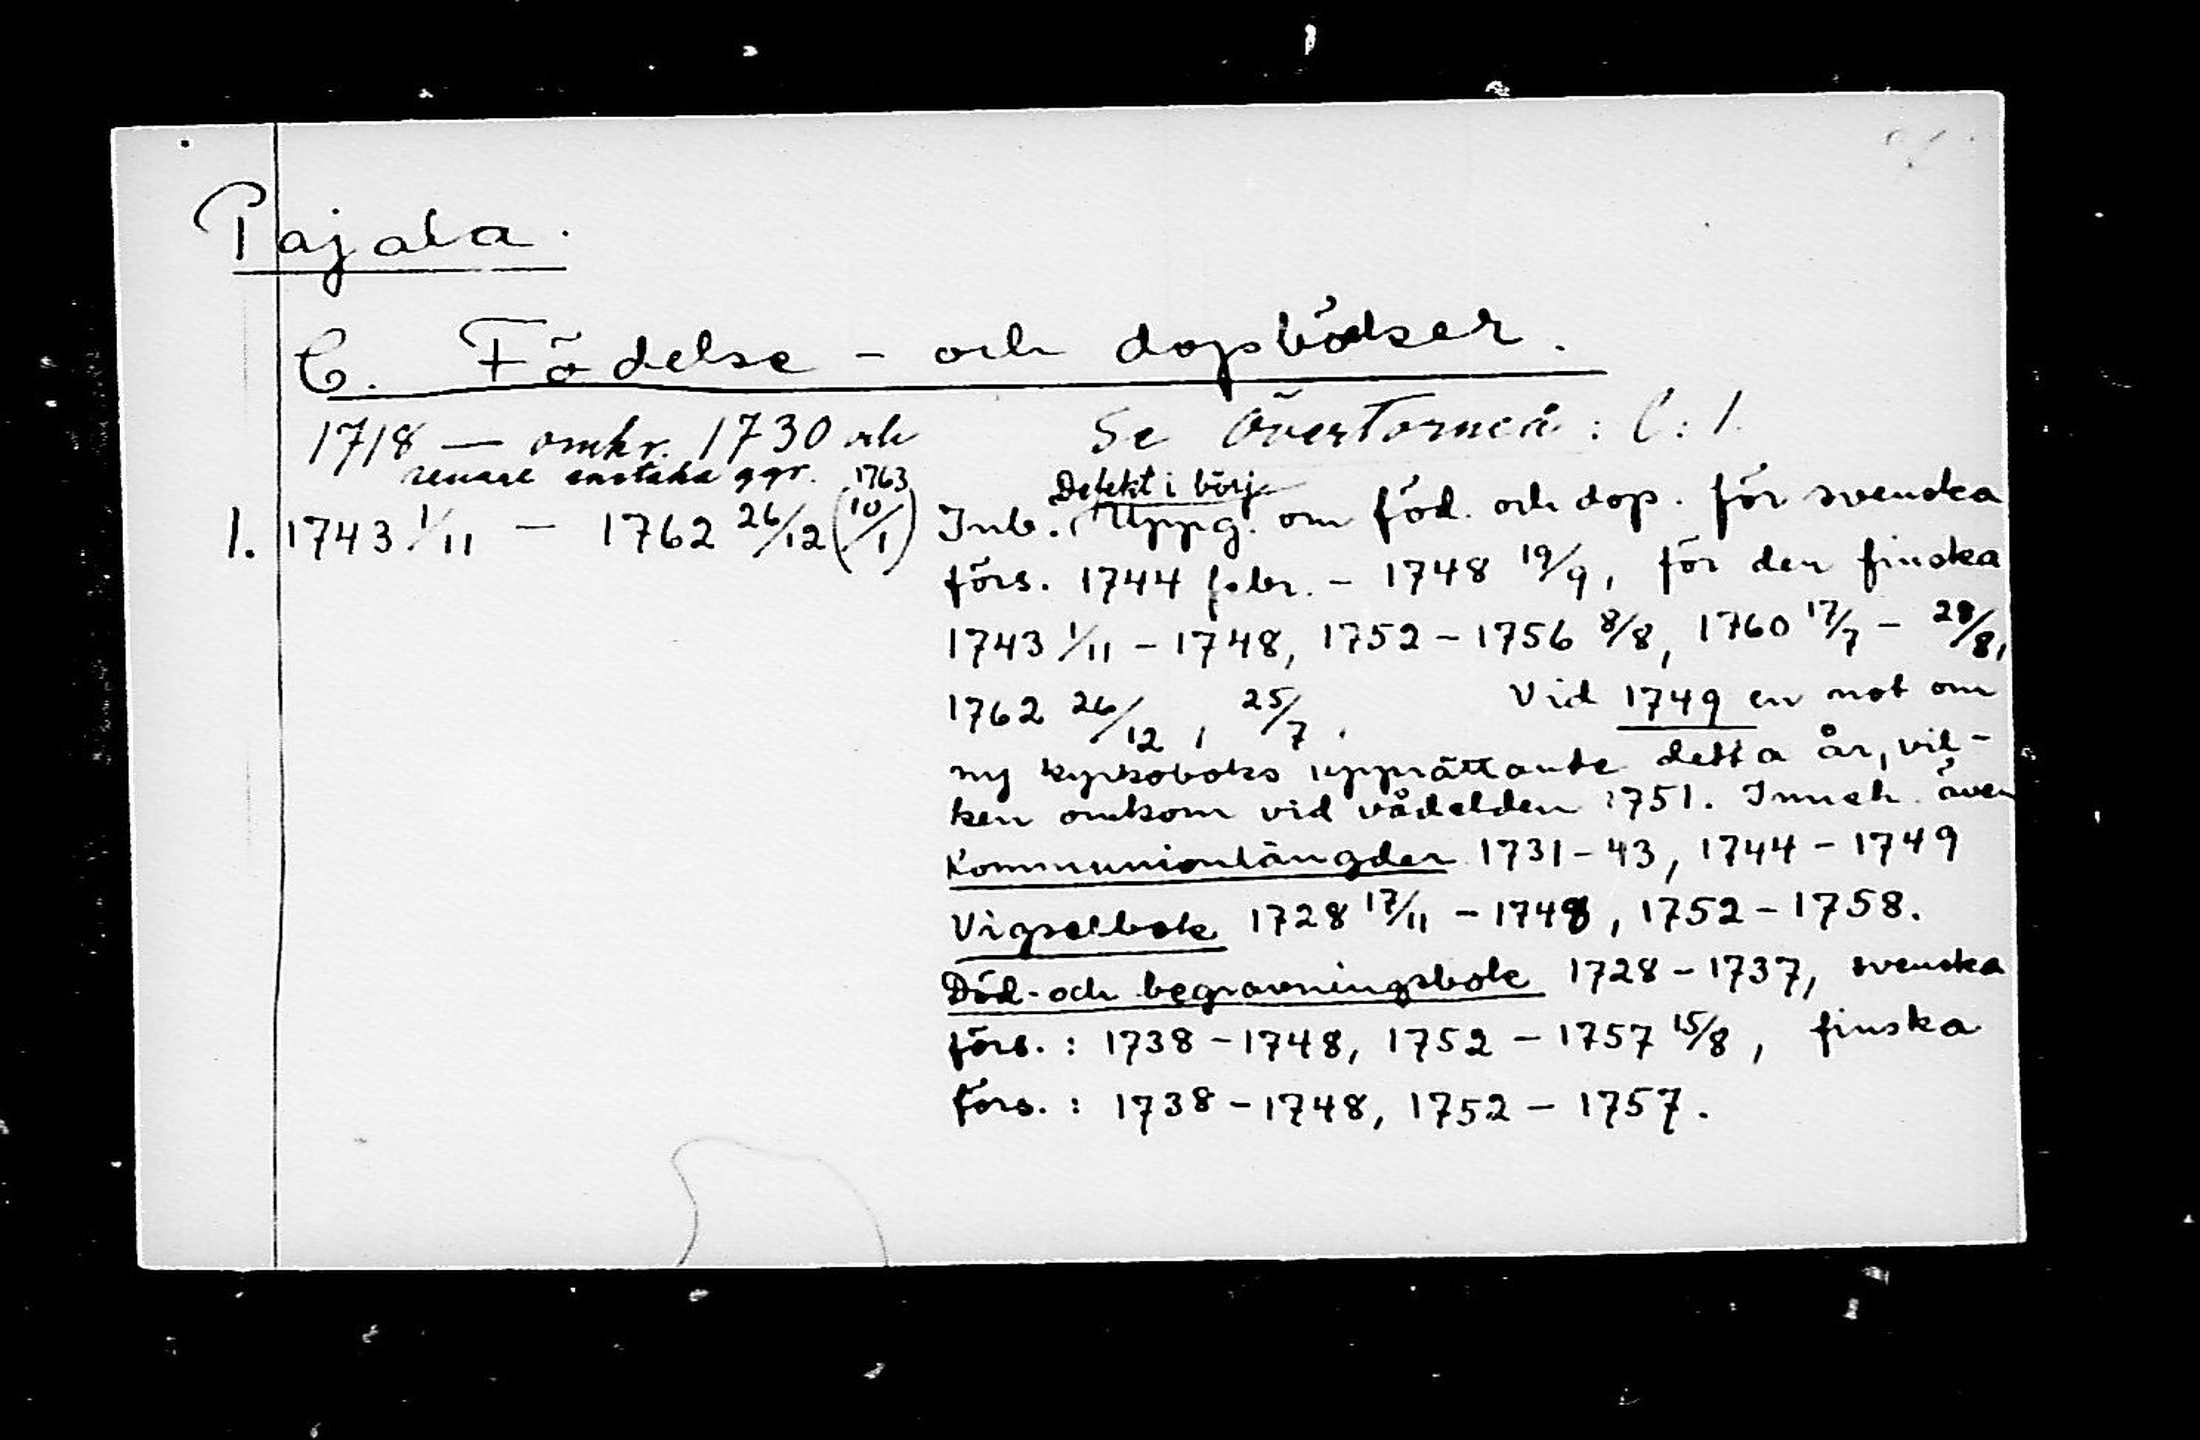 Pajala.
C. Födelse- och dopböcker.
1718 — omkr. 1730 och Se Övertorneå: C: 1.
senare enstaka ggr. 1763 Defekt i börj.
1. 1743 1/11 - 1762 26/12 (10/1) Inb. Uppg. om föd. och dop. för svenska
förs. 1744 febr. - 1748 19/9, för den finska
1743 1/11 - 1748, 1752 - 1756 8/8, 1760 17/7 - 28/8,
1762 26/12, 25/7. Vid 1749 en not om
ny kyrkoboks upprättande detta år, vil-
ken omkom vid vådelden 1751. Inneh. även
Kommunionlängder 1731-43, 1744-1749
Vigselbok 1728 17/11 - 1748, 1752-1758.
Död- och begravningsbok 1728-1737, svenska
förs.: 1738-1748, 1752-1757 15/8, finska
förs.: 1738-1748, 1752-1757.